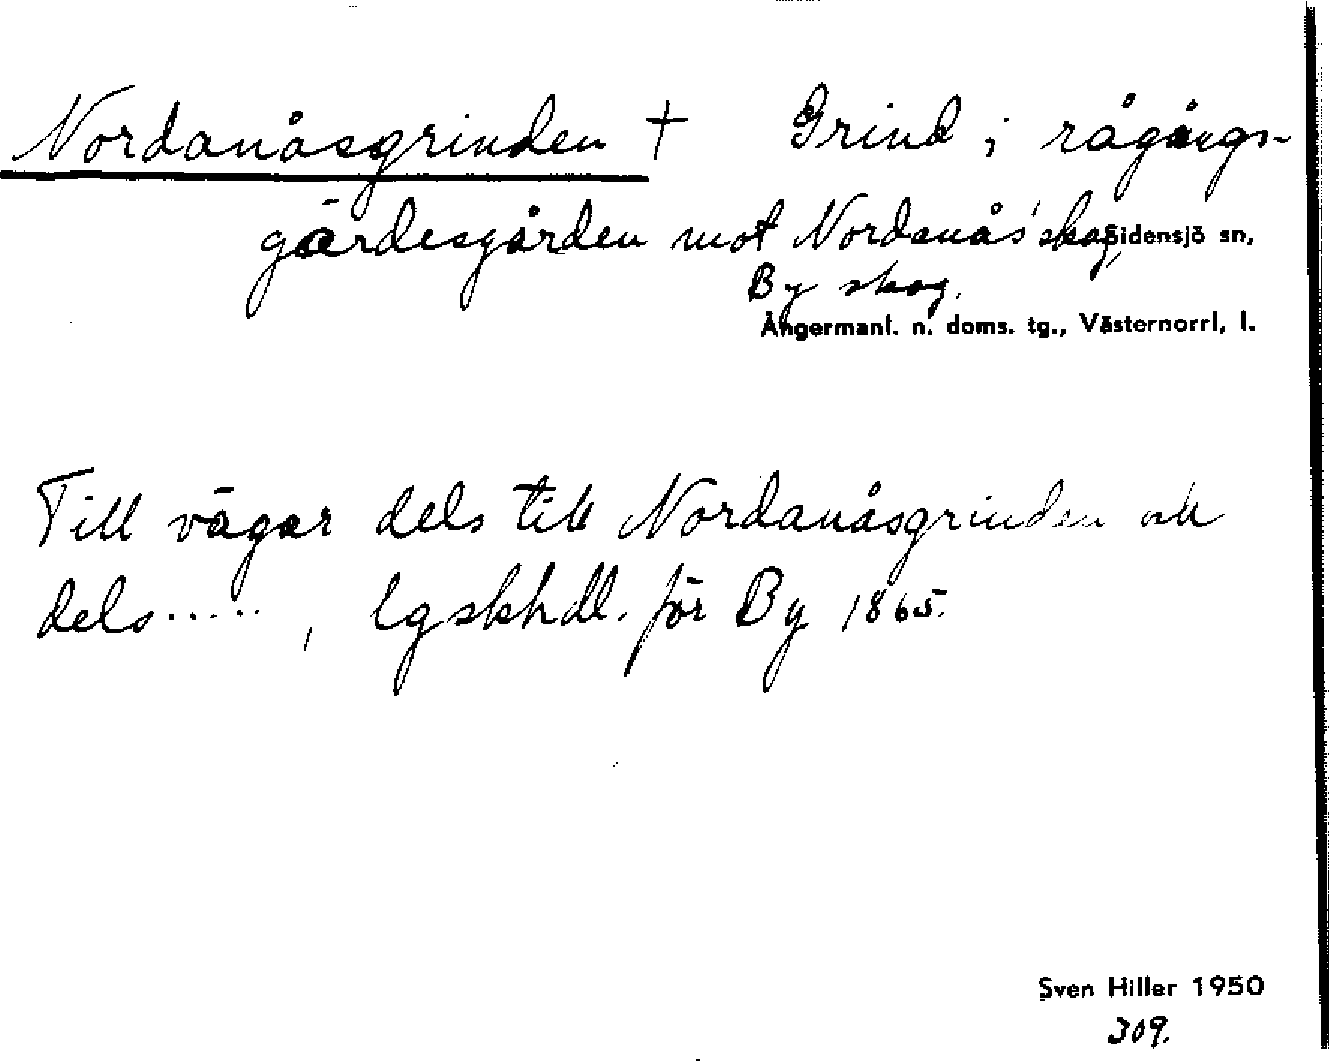 Nordanåsgrinden † Grind i rågångs-
gärdesgården mot Nordanås' skog, Sidensjö sn,
By skog.
Ångermanl. n. doms. tg., Västernorrl, l.
Till vägar dels till Nordanåsgrinden och
dels....., lgskhdl. för By 1865.
Sven Hiller 1950
309.